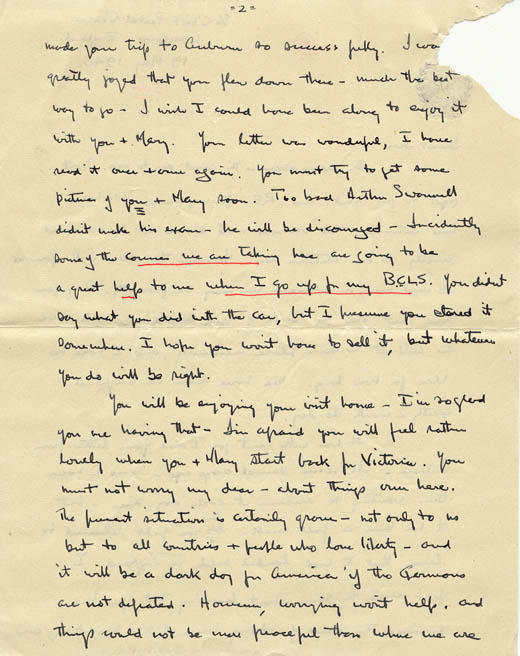 = 2 =
made your trip to Auburn so successfully. I was
greatly joyed that you flew down there – much the best
way to go – I wish I could have been along to enjoy it
with you + Mary. Your letter was wonderful, I have
read it once + once again. You must try to get some
pictures of you + Mary soon. Too bad Arthur Swannell
didn't make his exam – he will be discouraged – Incidently
some of the courses we are taking here are going to be
a great help to me when I go up for my B.C.L.S. You didn't
say what you did with the car, but I presume you stored it
somewhere. I hope you won't have to sell it, but whatever
you do will be right.
You will be enjoying your visit home – I'm so glad
you are having that – I'm afraid you will feel rather
lonely when you + Mary start back for Victoria. You
must not worry my dear – about things over here.
The present situation is certainly grave – not only to us
but to all countries + people who love liberty – and
it will be a dark day for America if the Germans
are not defeated. However, worrying won't help, and
things could not be more peaceful than where we are